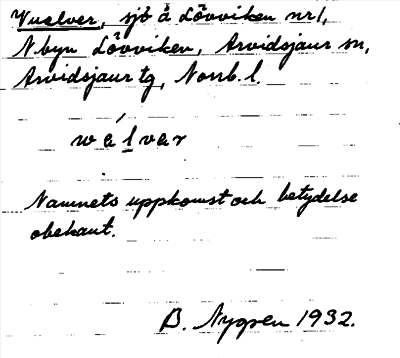 Vualver, sjö å Lövviken nr 1,
N. byn Lövviken, Arvidsjaur sn,
Arvidsjaur tg, Norrb. l.
wálvar
Namnets uppkomst och betydelse
obekant.
B. Nygren 1932.